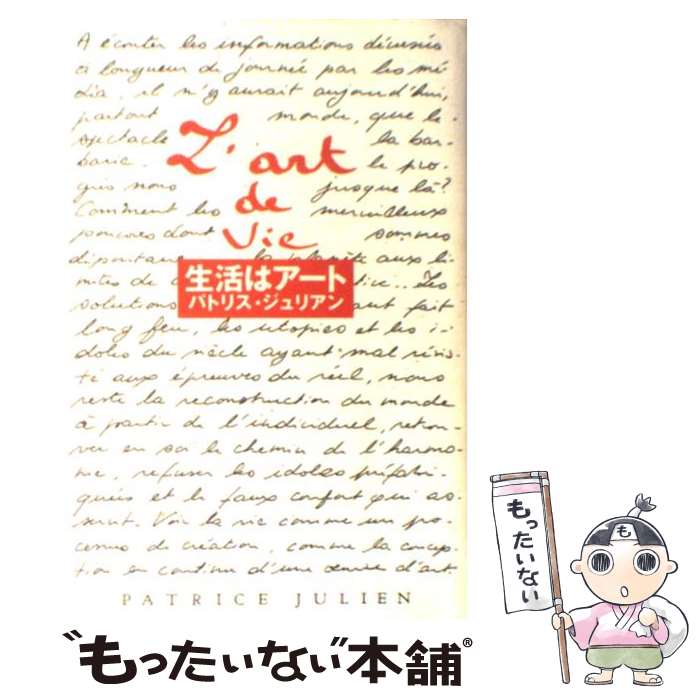 A écouter les informations décusées
à longueur de journée par les mé
dia, il n'y aurait aujourd'hui,
partout monde, que le
spectacle la bar-
barie. le pro-
grès nous jusque là?
Comment les merveilleux
pouvoirs dont sommes
la planète aux li-
mites de Les
solutions ont fait
long feu, les utopies et les i-
doles du siècle ayant mal résis-
té aux épreuves du réel, nous
reste la reconstruction du monde
à partir de l'individuel, retrou-
ver en soi le chemin de l'harmo-
nie, refuser les idoles préfabri-
quées et le faux confort qui as-
servit. Voir la vie comme un pro-
cessus de création, comme la concep-
tion en continu d'une œuvre d'art.
L'art
de
vie
生活はアート
パトリス・ジュリアン
PATRICE JULIEN
もったいない
も
"もったいない"本舗®